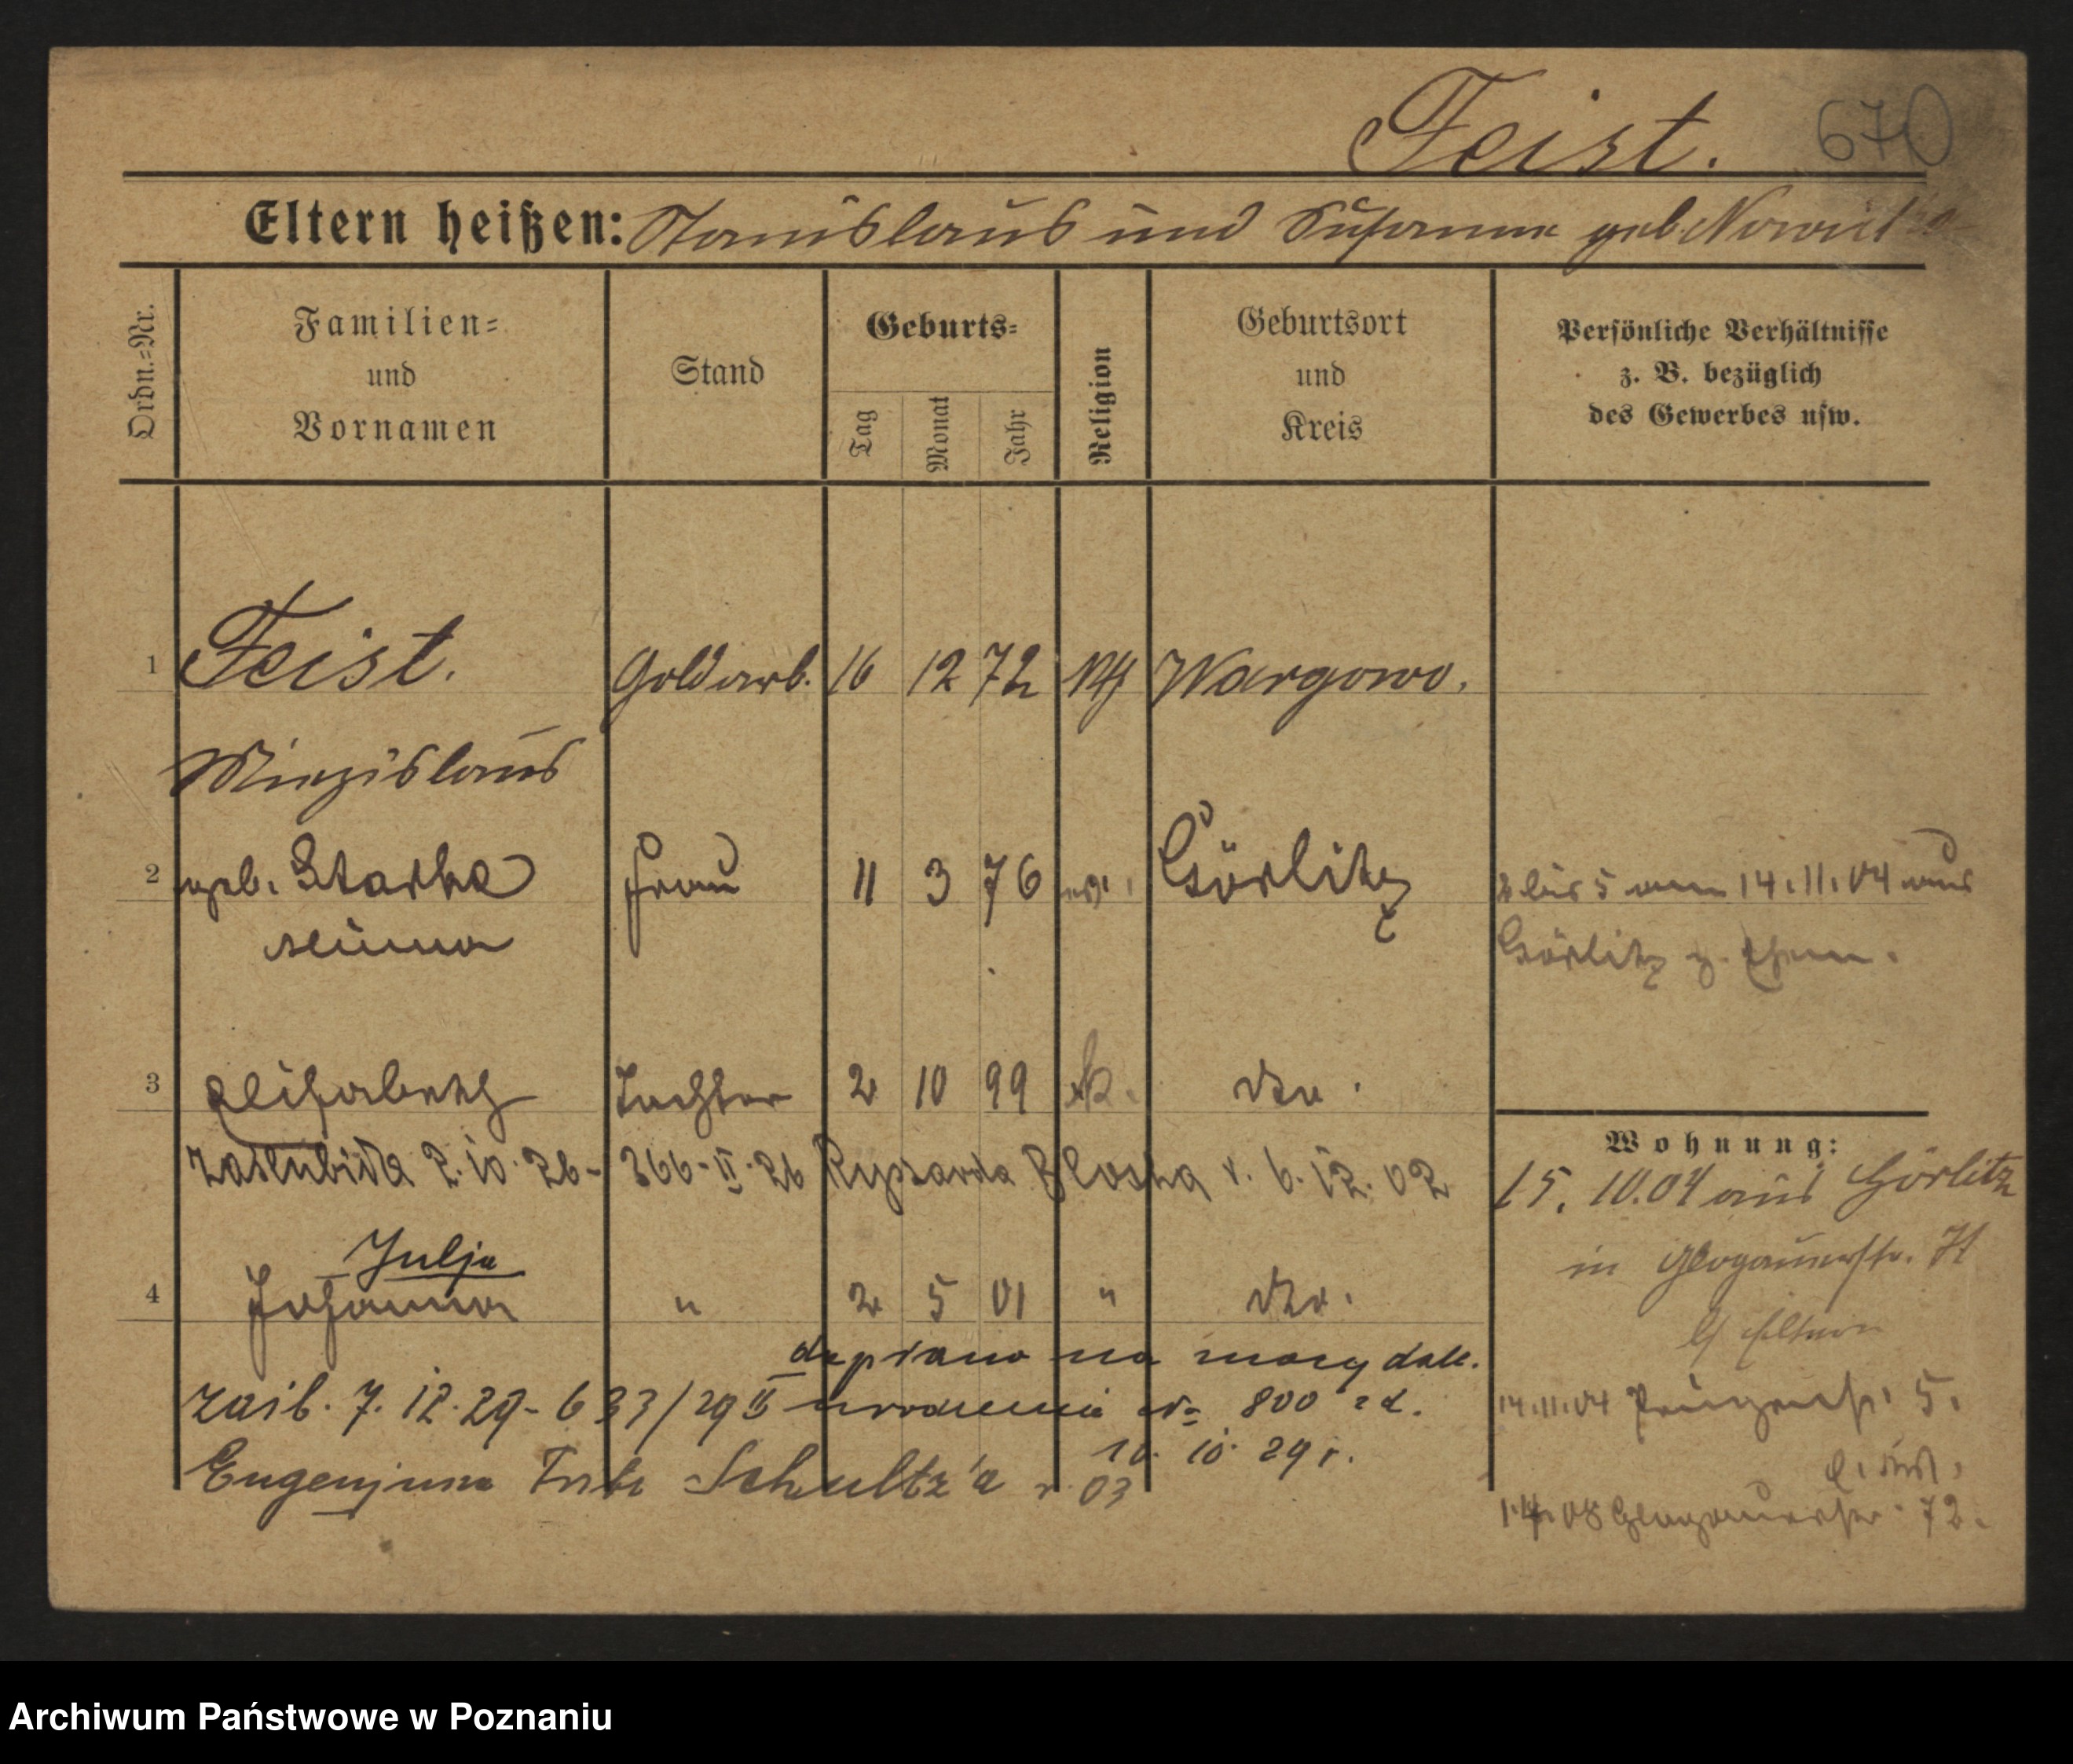 Feist. 670
Eltern heißen: Stanislaus und Susanna geb.
Ordn.=Nr.
Familien=
und
Vornamen
Stand
Geburts=
Tag
Monat
Jahr
Religion
Geburtsort
und
Kreis
Persönliche Verhältnisse
z. B. bezüglich
des Gewerbes usw.
1 Feist. Goldarb. 16 12 72 Wargowo.
Miezislaus
2 geb. Starke Frau 11 3 76 Görlitz
2 bis 5 am 14.11.04 aus
Görlitz z. Ehem.
3 Elisabeth Tochter 2 10 99 k. dto.
zaślubiła 2.10.26 - 366-II-26 Ryszarda Bloska r. 6.12.02
Julja
4 Johanna " 2 5 01 " dto.
dopisano na mocy dall.
zaśl. 7.12.29 - 633/29 II urodzenia Nr 800 z d.
10.10.29 r.
Eugenjusza Schultz'a r. 03
Wohnung:
15.10.04 aus Görlitz
in Glogauerstr. 71
b/ Eltern
14.11.04 5.
1.4.08 Glogauerstr. 72.
Archiwum Państwowe w Poznaniu